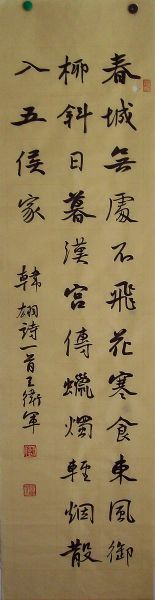 春城無處不飛花寒食東風御
柳斜日暮漢宮傳蠟燭輕烟散
入五侯家
韓翃詩一首王衛軍